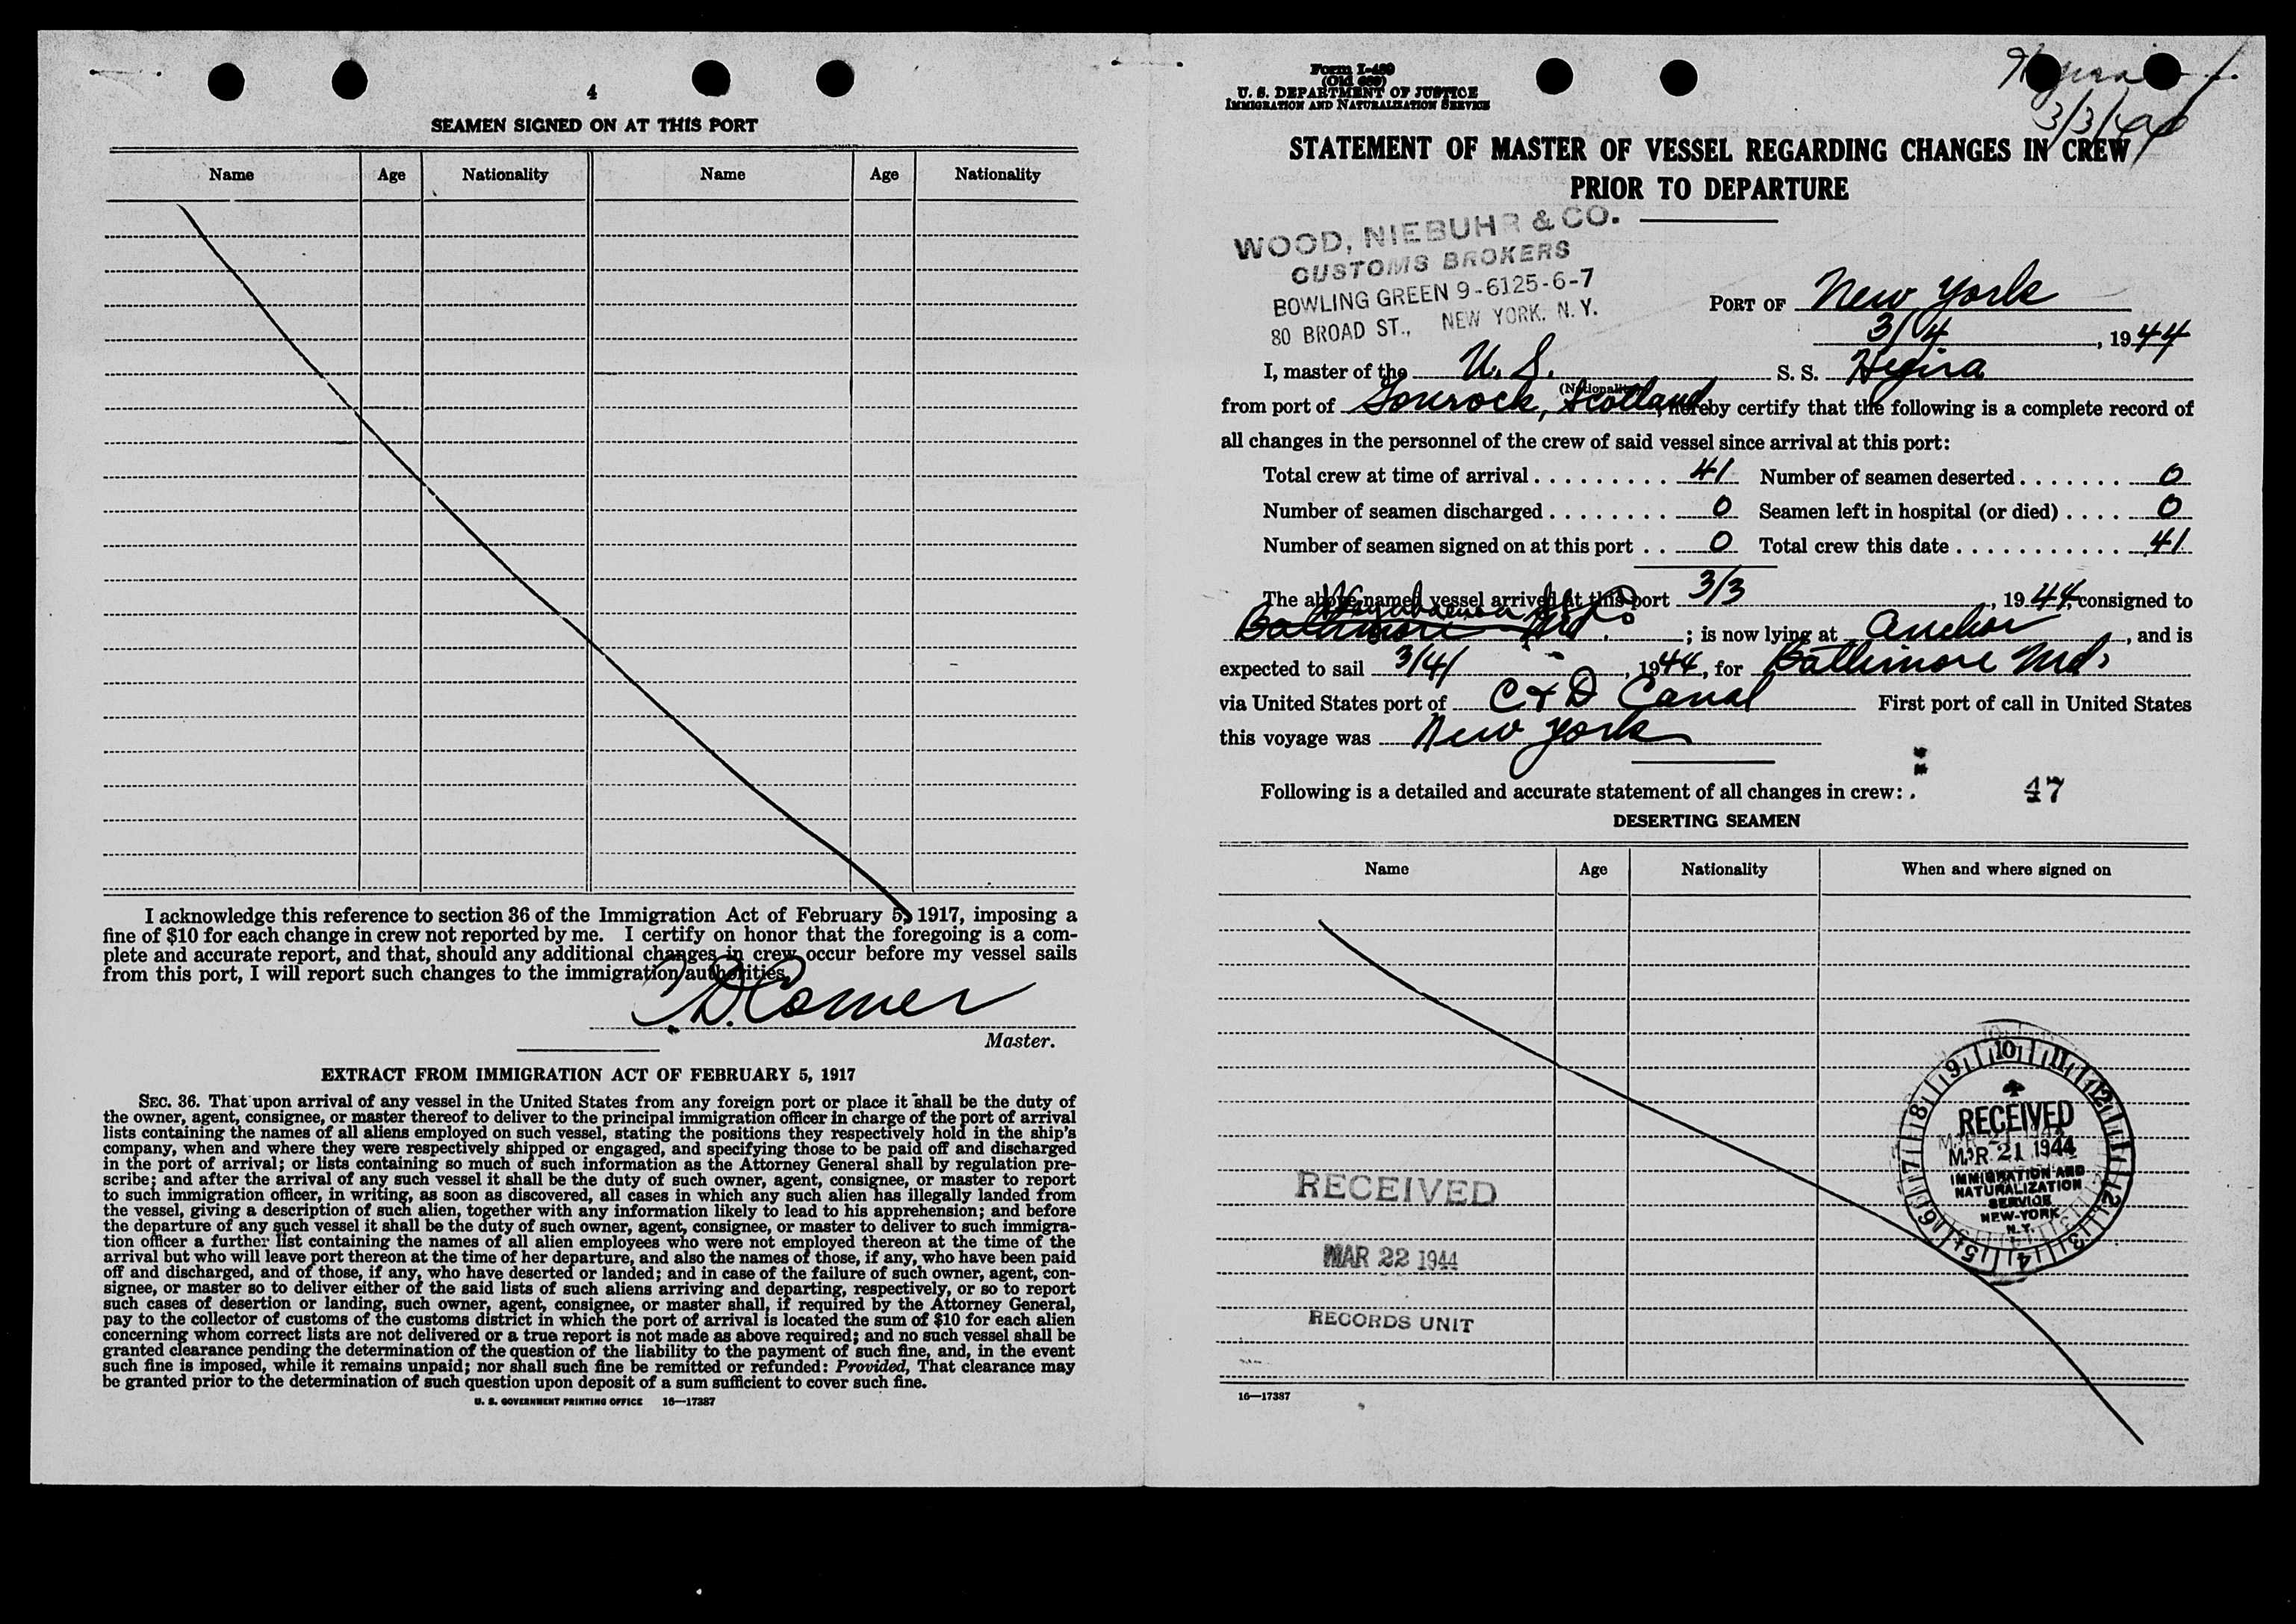 4
SEAMEN SIGNED ON AT THIS PORT
Name Age Nationality Name Age Nationality
I acknowledge this reference to section 36 of the Immigration Act of February 5, 1917, imposing a
fine of $10 for each change in crew not reported by me. I certify on honor that the foregoing is a com-
plete and accurate report, and that, should any additional changes in crew occur before my vessel sails
from this port, I will report such changes to the immigration authorities.
D. Comer
Master.
EXTRACT FROM IMMIGRATION ACT OF FEBRUARY 5, 1917
SEC. 36. That upon arrival of any vessel in the United States from any foreign port or place it shall be the duty of
the owner, agent, consignee, or master thereof to deliver to the principal immigration officer in charge of the port of arrival
lists containing the names of all aliens employed on such vessel, stating the positions they respectively hold in the ship's
company, when and where they were respectively shipped or engaged, and specifying those to be paid off and discharged
in the port of arrival; or lists containing so much of such information as the Attorney General shall by regulation pre-
scribe; and after the arrival of any such vessel it shall be the duty of such owner, agent, consignee, or master to report
to such immigration officer, in writing, as soon as discovered, all cases in which any such alien has illegally landed from
the vessel, giving a description of such alien, together with any information likely to lead to his apprehension; and before
the departure of any such vessel it shall be the duty of such owner, agent, consignee, or master to deliver to such immigra-
tion officer a further list containing the names of all alien employees who were not employed thereon at the time of the
arrival but who will leave port thereon at the time of her departure, and also the names of those, if any, who have been paid
off and discharged, and of those, if any, who have deserted or landed; and in case of the failure of such owner, agent, con-
signee, or master so to deliver either of the said lists of such aliens arriving and departing, respectively, or so to report
such cases of desertion or landing, such owner, agent, consignee, or master shall, if required by the Attorney General,
pay to the collector of customs of the customs district in which the port of arrival is located the sum of $10 for each alien
concerning whom correct lists are not delivered or a true report is not made as above required; and no such vessel shall be
granted clearance pending the determination of the question of the liability to the payment of such fine, and, in the event
such fine is imposed, while it remains unpaid; nor shall such fine be remitted or refunded: Provided, That clearance may
be granted prior to the determination of such question upon deposit of a sum sufficient to cover such fine.
U. S. GOVERNMENT PRINTING OFFICE 16—17387
Form I-489
(Old 689)
U. S. DEPARTMENT OF JUSTICE
IMMIGRATION AND NATURALIZATION SERVICE
Hegira
3/3/44
STATEMENT OF MASTER OF VESSEL REGARDING CHANGES IN CREW
PRIOR TO DEPARTURE
WOOD, NIEBUHR & CO.
CUSTOMS BROKERS
BOWLING GREEN 9-6125-6-7
80 BROAD ST., NEW YORK, N. Y.
PORT OF New York
3/4, 1944
I, master of the U. S. S. S. Hegira
(Nationality)
from port of Gourock, Scotland, hereby certify that the following is a complete record of
all changes in the personnel of the crew of said vessel since arrival at this port:
Total crew at time of arrival . . . . . . . . . . 41 Number of seamen deserted . . . . . . . 0
Number of seamen discharged . . . . . . . . 0 Seamen left in hospital (or died) . . . . 0
Number of seamen signed on at this port . . 0 Total crew this date . . . . . . . . . . . . 41
The above-named vessel arrived at this port 3/3, 1944, consigned to
Baltimore Md. ; is now lying at Anchor, and is
expected to sail 3/4/, 1944, for Baltimore Md.
via United States port of C & D Canal First port of call in United States
this voyage was New York
Following is a detailed and accurate statement of all changes in crew: .
47
DESERTING SEAMEN
Name Age Nationality When and where signed on
RECEIVED
MAR 21 1944
IMMIGRATION AND
NATURALIZATION
SERVICE
NEW-YORK
N.Y.
RECEIVED
MAR 22 1944
RECORDS UNIT
16—17387